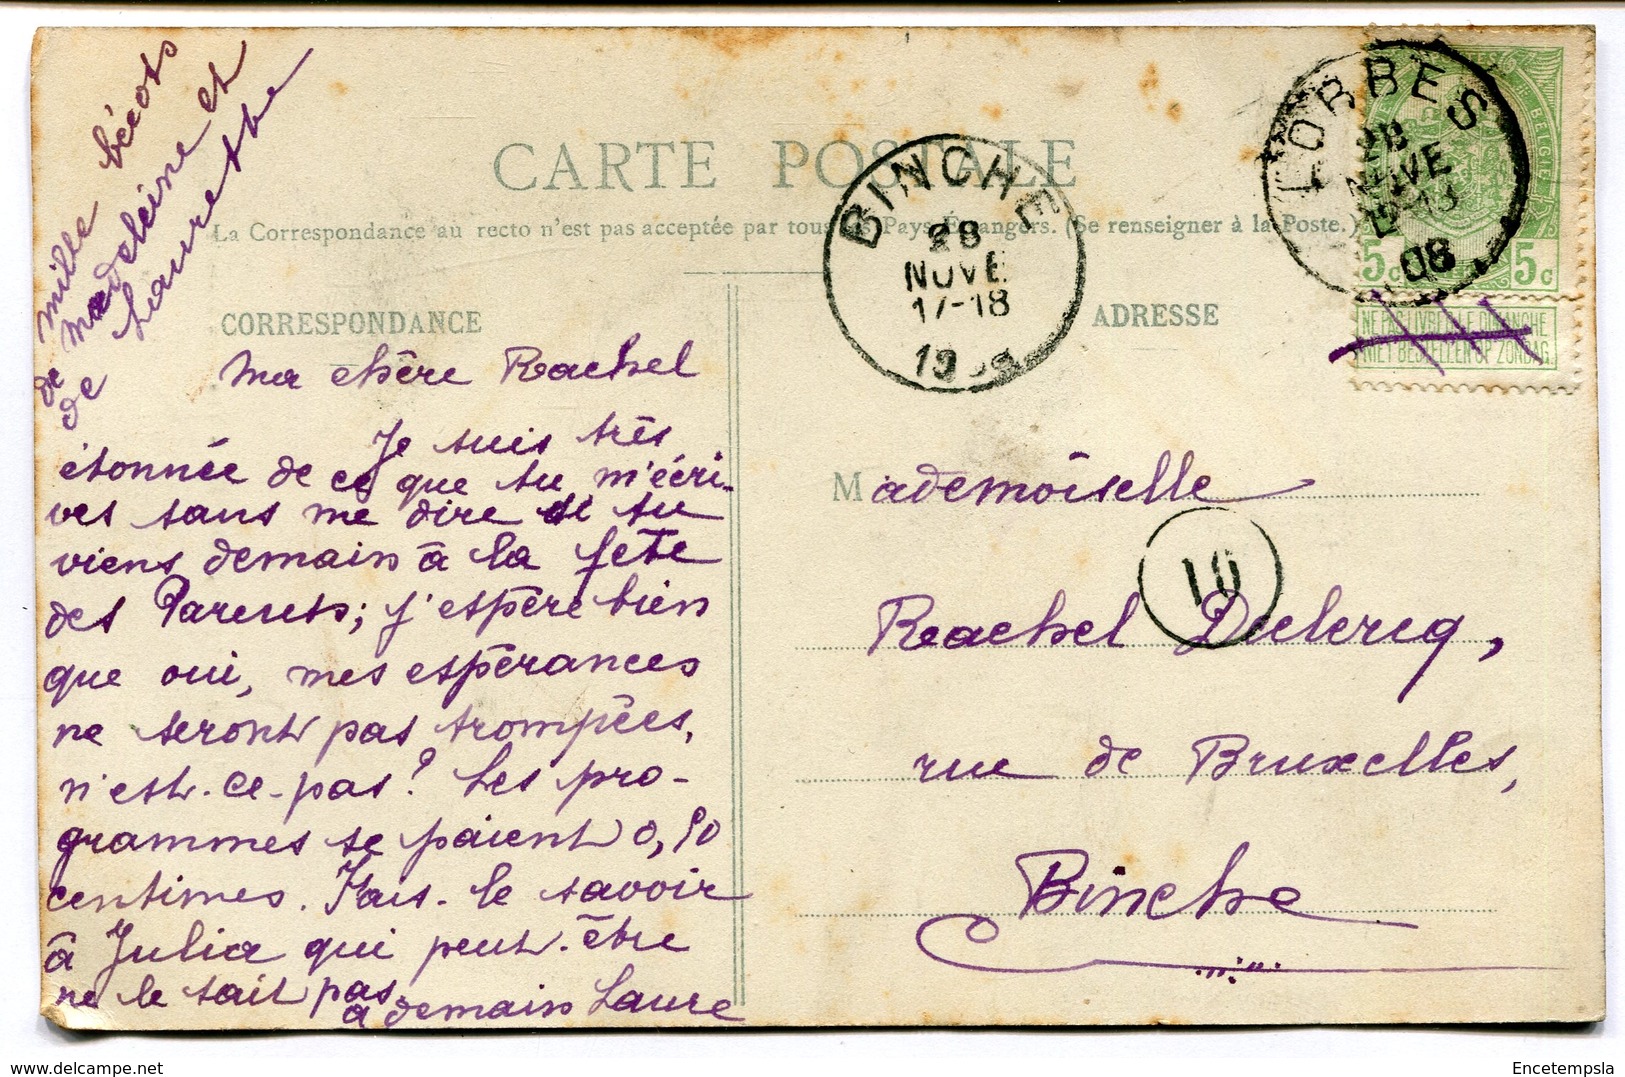 mille bécots
de madeleine et
de Laurette
CARTE POSTALE
La Correspondance au recto n'est pas acceptée par tous les Pays Étrangers. (Se renseigner à la Poste.)
CORRESPONDANCE
ma chère Rachel
Je suis très
étonnée de ce que tu m'écri-
ves sans me dire si tu
viens demain à la fête
des Parents; j'espère bien
que oui, mes espérances
ne seront pas trompées,
n'est-ce-pas? Les pro-
grammes se paient 0,10
centimes. Fais-le savoir
à Julia qui peut-être
ne le sait pas
à demain Laure
BINCHE
28
NOVE
17-18
19
ADRESSE
LOBBES
28
NOVE
08
BELGIE
5c 5c
NE PAS LIVRER LE DIMANCHE
NIET BESTELLEN OP ZONDAG
Mademoiselle
10
Rachel Duclercq,
rue de Bruxelles,
Binche
Encetempsla